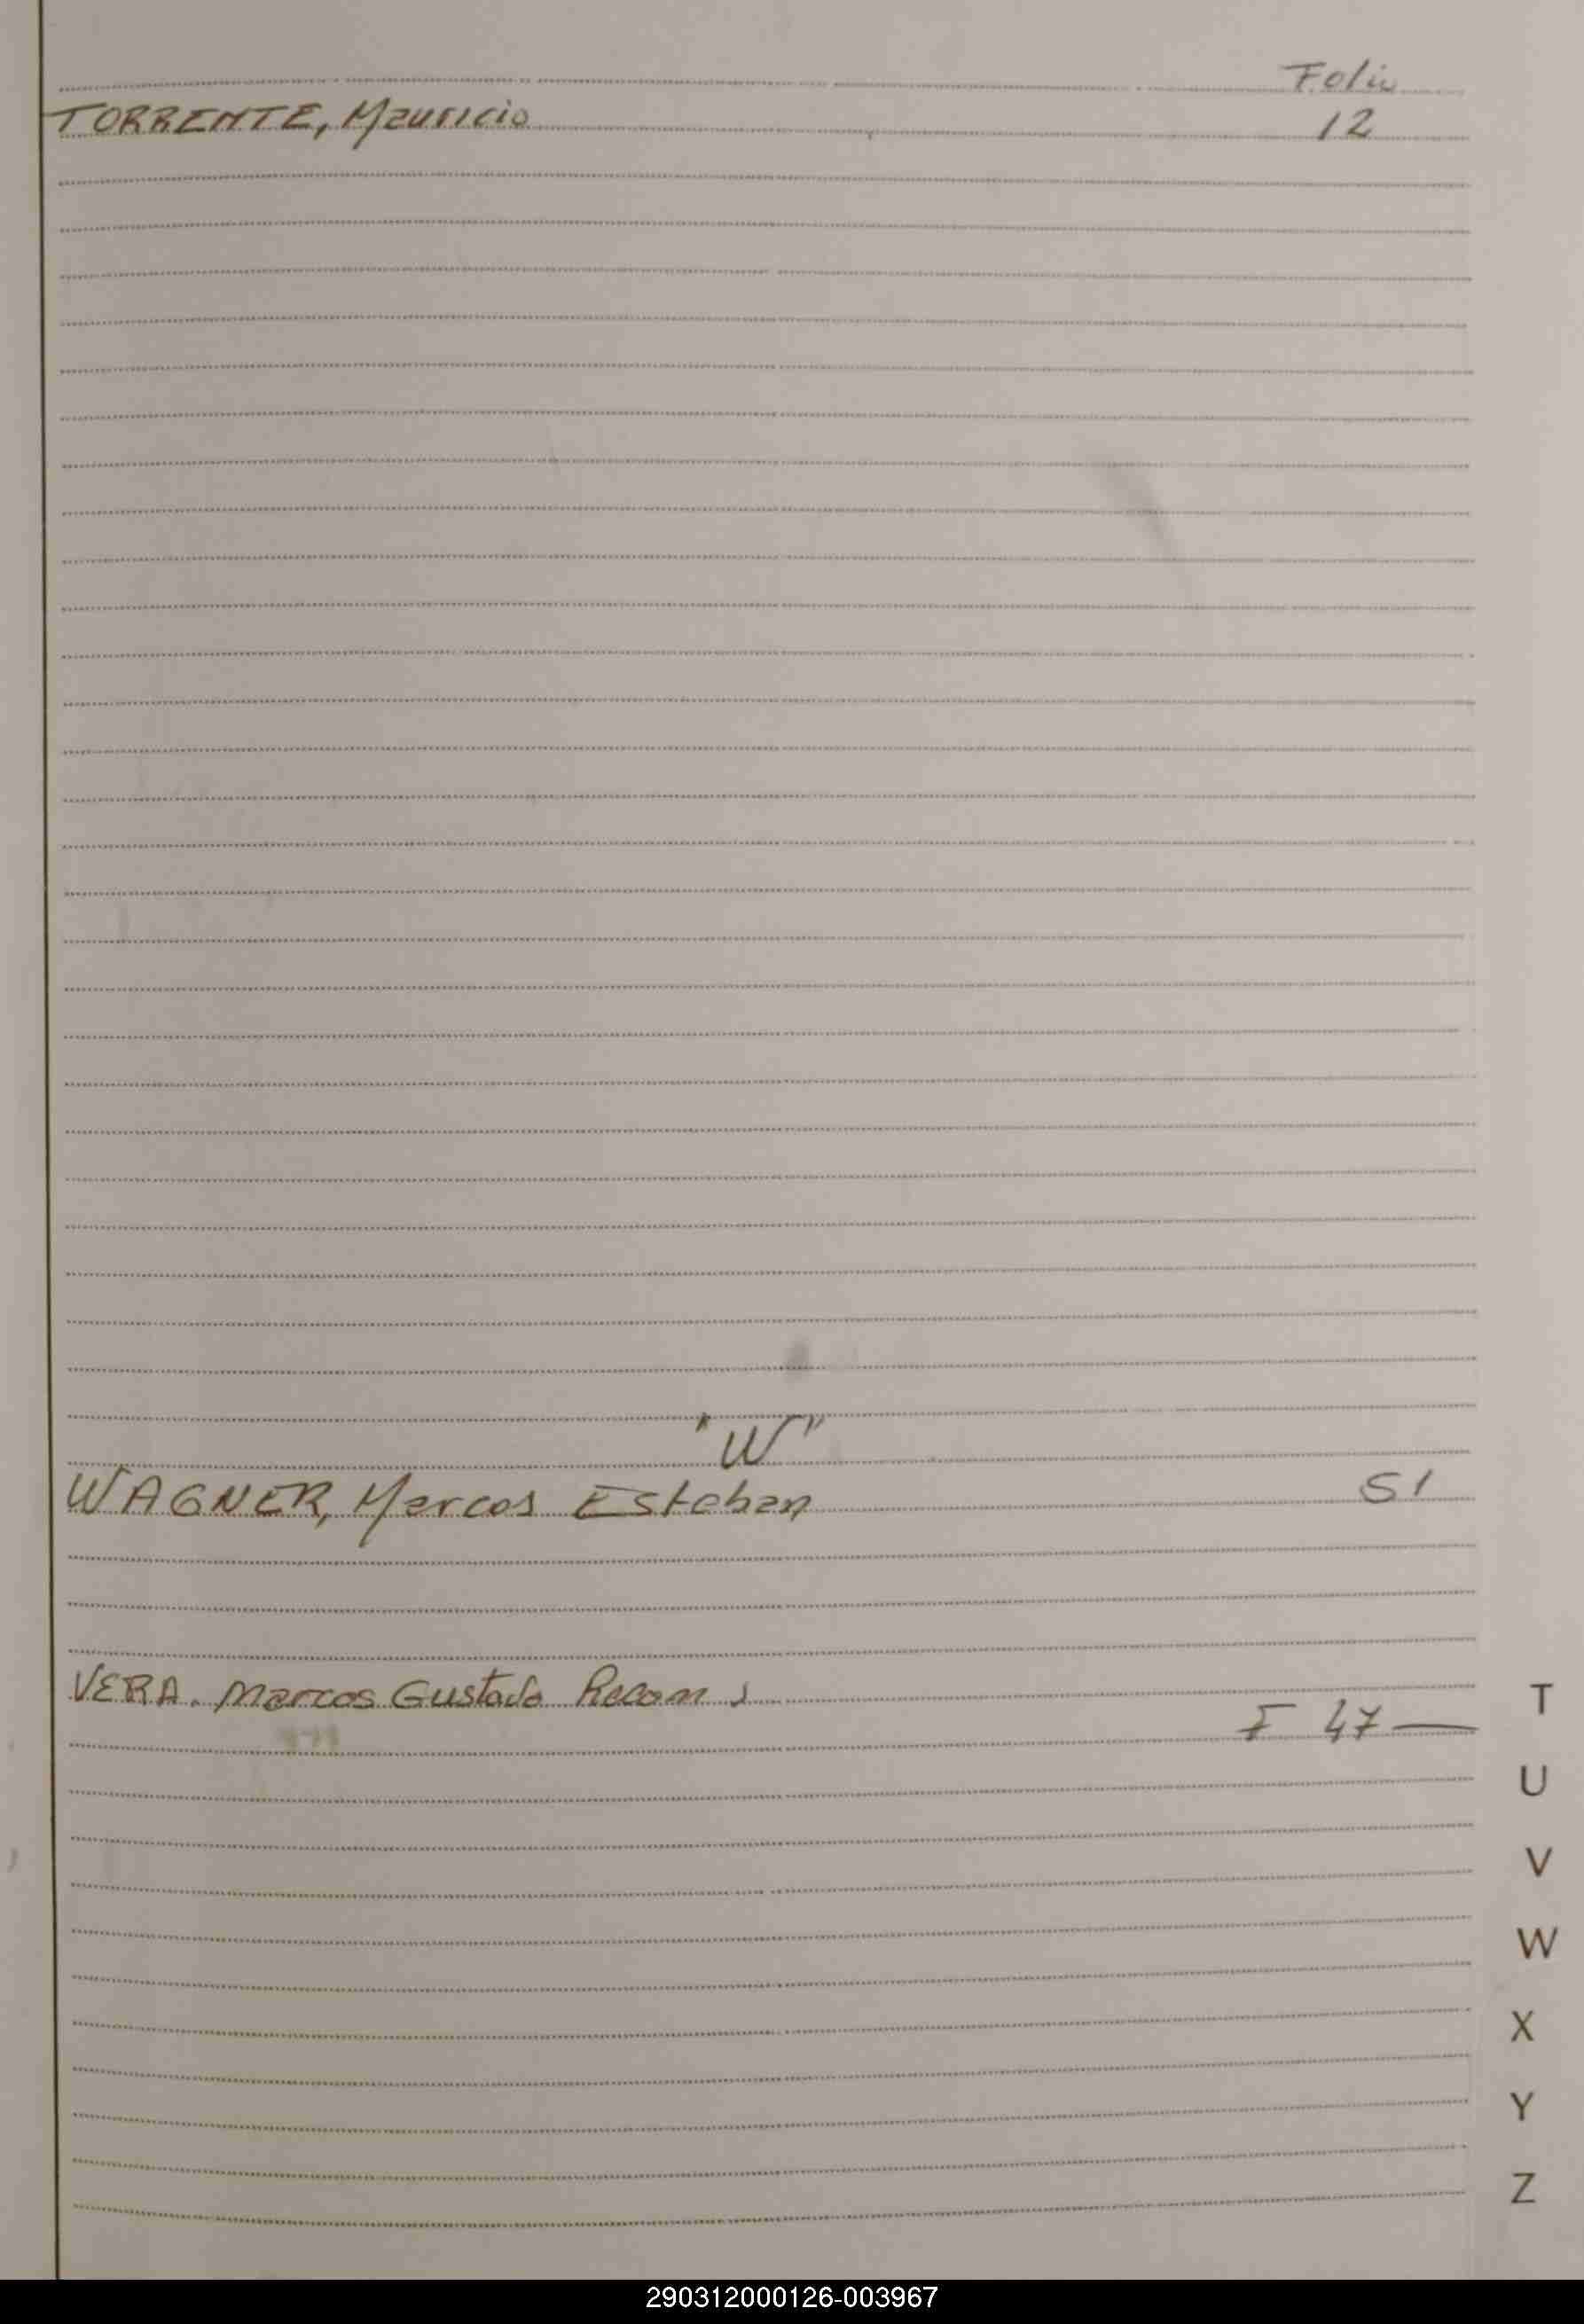 Folio
TORRENTE, Mauricio 12
"W"
WAGNER, Marcos Esteban 51
VERA. Marcos Gustavo Recon
F 47 —
T
U
V
W
X
Y
Z
290312000126-003967